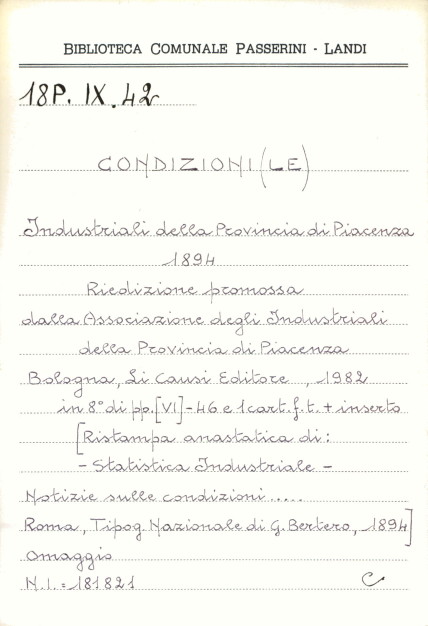 BIBLIOTECA COMUNALE PASSERINI - LANDI
18P. IX. 42
CONDIZIONI (LE)
Industriali della Provincia di Piacenza
1894
Riedizione promossa
dalla Associazione degli Industriali
della Provincia di Piacenza
Bologna, Li Causi Editore, 1982
in 8° di pp. [VI] - 46 e 1 cart. f. t. + inserto
[Ristampa anastatica di:
- Statistica Industriale -
Notizie sulle condizioni.....
Roma, Tipog. Nazionale di G. Bertero, 1894]
omaggio
N. I. = 181821 C